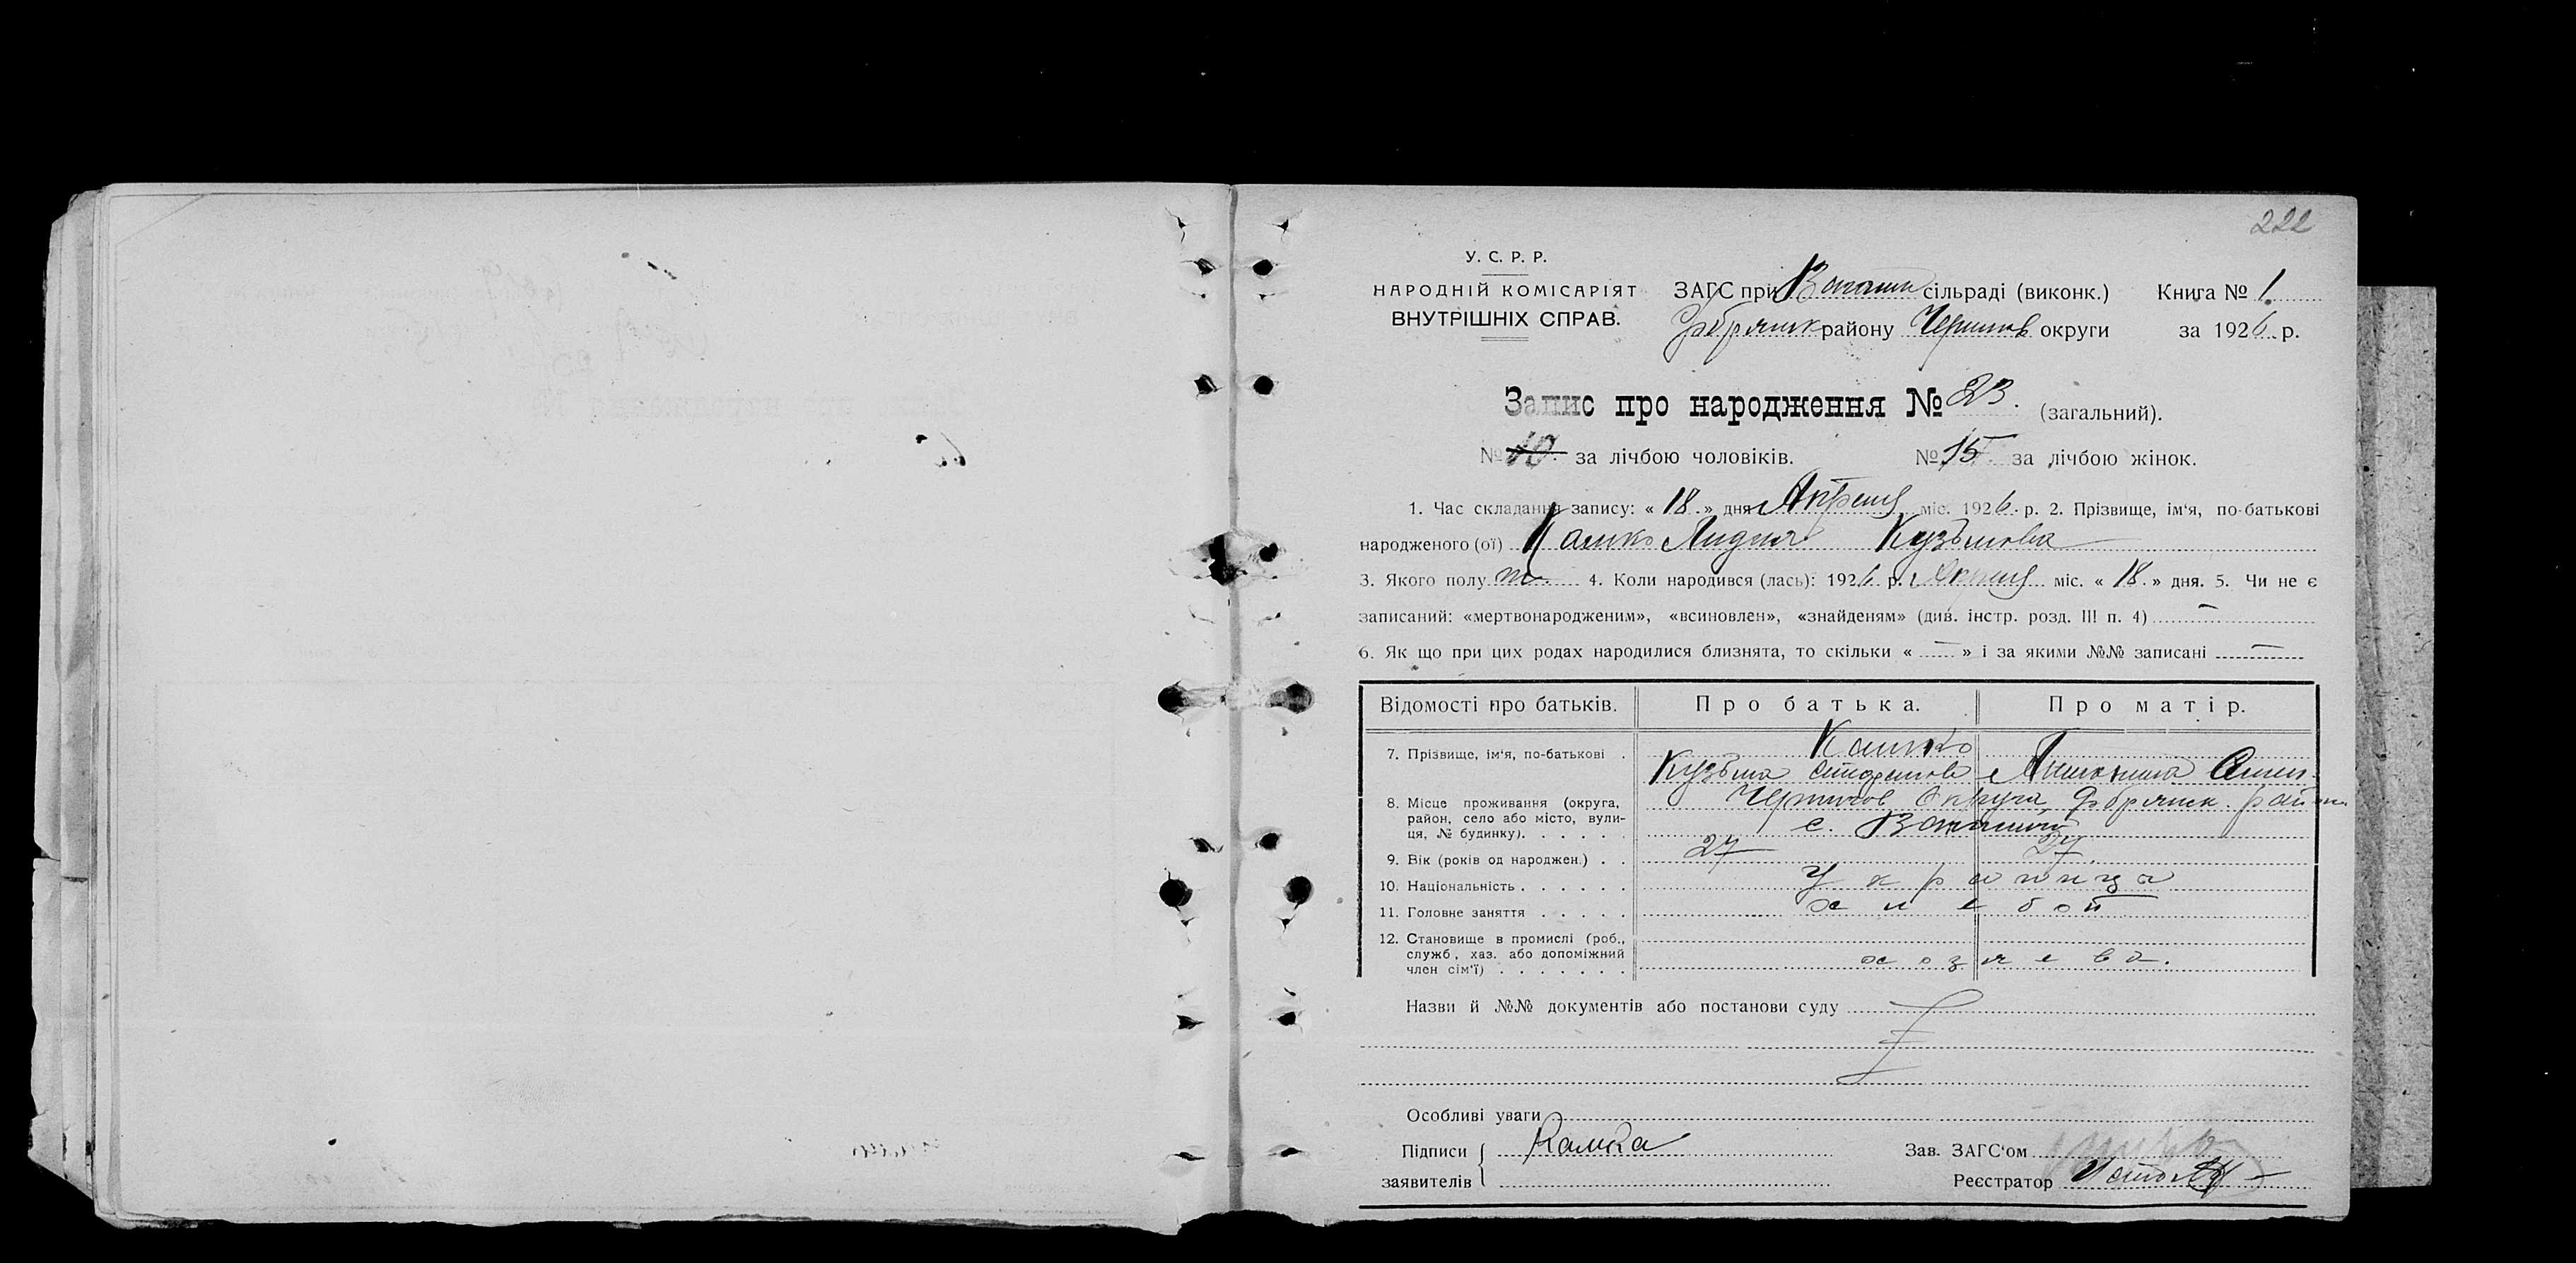 222
У. С. Р. Р.
НАРОДНІЙ КОМІСАРІЯТ
ВНУТРІШНІХ СПРАВ.
ЗАГС при сільраді (виконк.) Книга № 1.
району Чернигов округи за 1926 р.
Запис про народження № 23. (загальний).
№ 10. за лічбою чоловіків. № 15 за лічбою жінок.
1. Час складання запису: « 18 » дня Апреля міс. 1926 р. 2. Прізвище, ім'я, по-батькові
народженого (ої) Лидия Кузьмова
3. Якого полу 4. Коли народився (лась): 1926 р. Апреля міс. « 18 » дня. 5. Чи не є
записаний: «мертвонародженим», «всиновлен», «знайденям» (див. інстр. розд. III п. 4) —
6. Як що при цих родах народилися близнята, то скільки « — » і за якими №№ записані —
Відомості про батьків. Про батька. Про матір.
7. Прізвище, ім'я, по-батькові .
Кузьма
8. Місце проживання (округа,
район, село або місто, вули-
ця, № будинку). . . . . .
Чернигов округа, Добрянск. район
с.
9. Вік (років од народжен.) . . 27 27.
10. Національність . . . . . . Украинцы
11. Головне заняття . . . . . хлебоп
12. Становище в промислі (роб.,
служб, хаз. або допоміжний
член сім'ї) . . . . . . .
хозяева.
Назви й №№ документів або постанови суду
Особливі уваги
Підписи
заявителів
Зав. ЗАГС'ом
Реєстратор